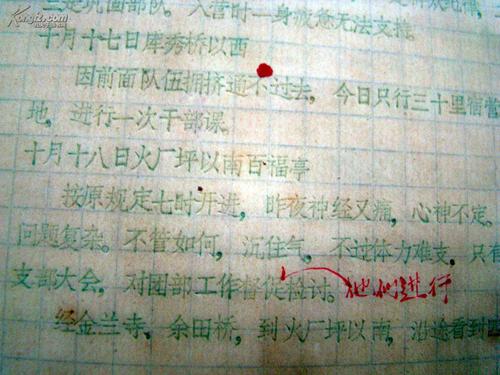 巩固部队。入营时一身疲惫无法支撑。
十月十七日库秀桥以西
因前面队伍拥挤通不过去，今日只行三十里宿营
地，进行一次干部课。
十月十八日火厂坪以南百福亭
按原规定七时开进，昨夜神经又痛，心神不定。
问题复杂。不管如何，沉住气，不过体力难支，只有
支部大会，对团部工作督促检讨。他们进行
经金兰寺，余田桥，到火厂坪以南，沿途看到